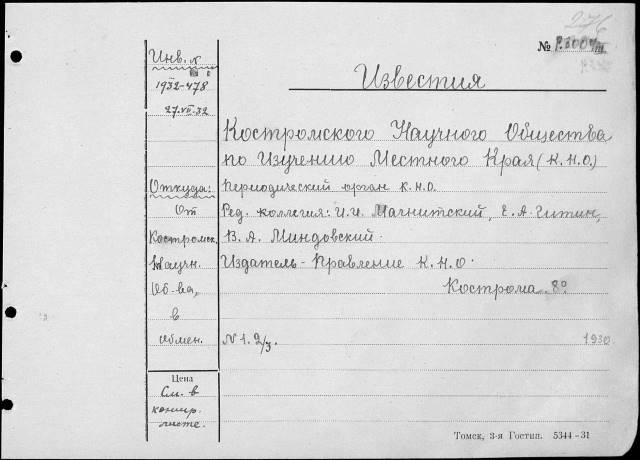 276
№
Известия
Инв. к
1932-478
27.VII.32
Костромского Научного Общества
по Изучению Местного Края (К.Н.О.)
Откуда:
Периодический орган К.Н.О.
От
Ред. коллегия: И.И. Магнитский, Е.А. Гитин,
Костромск.
В. А. Миндовский.
Научн.
Издатель - Правление К.Н.О.
Об-ва,
Кострома 8º
в
обмен.
N 1. 2/3.
1930
Цена
См. в
листе.
Томск, 3-я Гостип. 5344-31